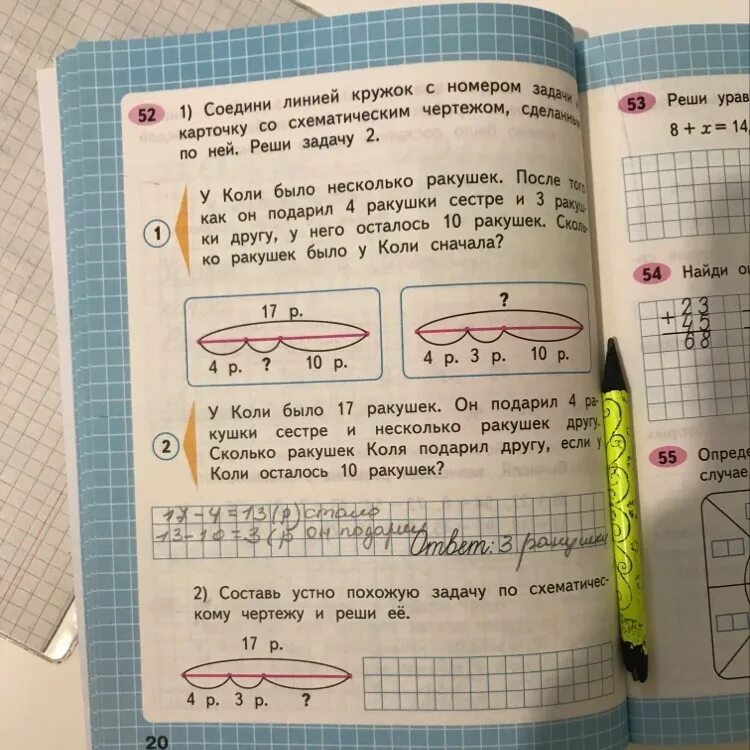 52 1) Соедини линией кружок с номером задачи
карточку со схематическим чертежом, сделанным
по ней. Реши задачу 2.
1
У Коли было несколько ракушек. После того
как он подарил 4 ракушки сестре и 3 ракуш-
ки другу, у него осталось 10 ракушек. Сколь-
ко ракушек было у Коли сначала?
17 р.
4 р. ? 10 р.
?
4 р. 3 р. 10 р.
2
У Коли было 17 ракушек. Он подарил 4 ра-
кушки сестре и несколько ракушек другу.
Сколько ракушек Коля подарил другу, если у
Коли осталось 10 ракушек?
17-4=13(р) стало
13-10=3(р он подарил
Ответ: 3 ракушки
2) Составь устно похожую задачу по схематичес-
кому чертежу и реши её.
17 р.
4 р. 3 р. ?
20
53 Реши урав
8 + x = 14,
54 Найди
+ 23
45
68
55 Опреде
случае,